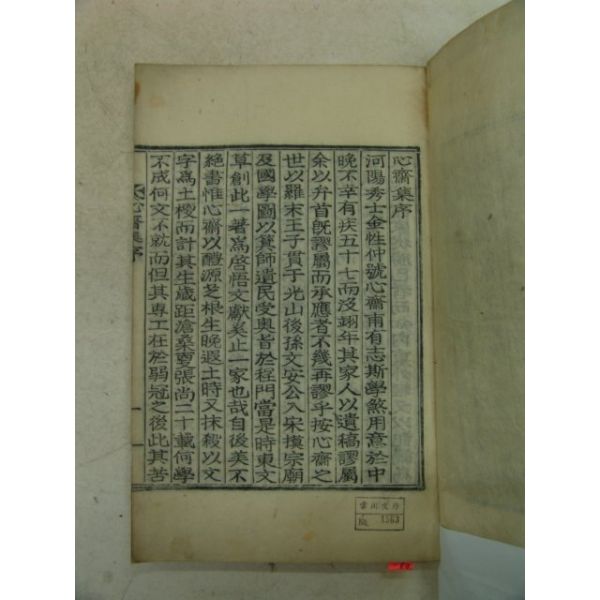 心齋集序
河陽秀士金性仲號心齋甫有志斯學煞用意於中
晚不幸有疾五十七而沒翊年其家人以遺稿謬屬
余以弁首旣謬屬而承應者不幾再謬乎按心齋之
世以羅末王子貫于光山後孫文安公入宋摸宗廟
及國學圖以箕師遺民受奧旨於程門當是時東文
草創此一著爲啓悟文獻奚止一家也哉自後美不
絕書惟心齋以醴源芝根生晚遐土時又抹殺以文
字爲土梗而計其生歲距滄桑輒張尚二十載何學
不成何文不就而但其專工在於弱冠之後此其苦
心齋集序
一
1563